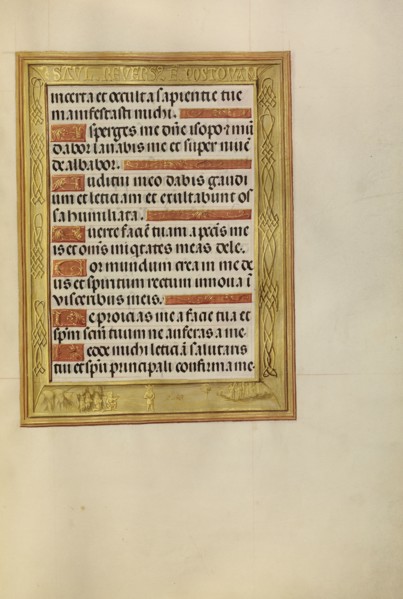 SAVL REVERSTE POSTQVAM
incerta et occulta sapientie tue
manifestasti michi.
Asperges me dñe isopo & mũ
dabor lavabis me et super nivẽ
dealbabor.
Auditui meo dabis gaudi
um et leticiam et exultabunt os
sa humiliata.
Averte faciẽ tuam a pccis me
is et om̃s iniqtates meas dele.
Cor mundum crea in me de
us et spiritum rectum innova ĩ
visceribus meis.
Ne proicias me a facie tua et
spm̃ scm̃ tuum ne auferas a me.
Redde michi leticiã salutaris
tui et spũ principali confirma me.